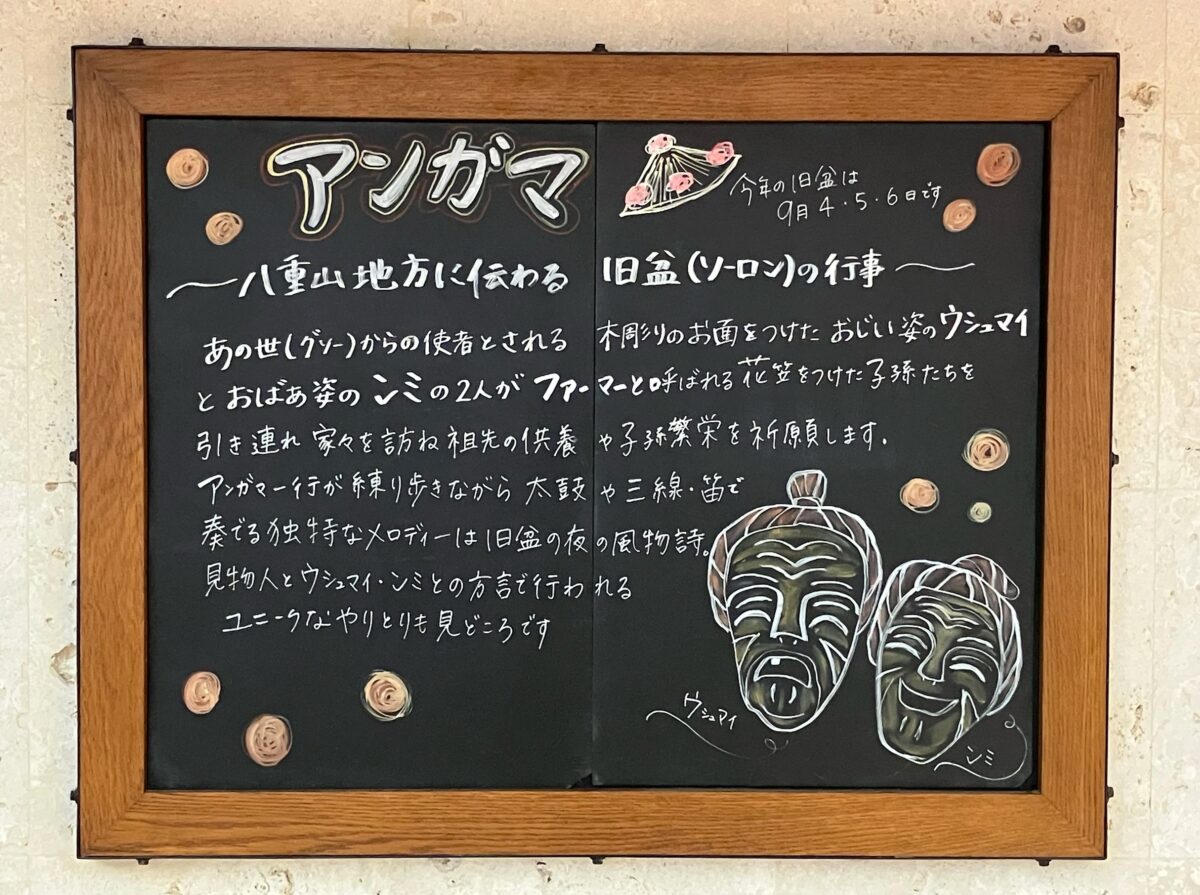 アンガマ
今年の旧盆は
9月4・5・6日です
〜八重山地方に伝わる 旧盆(ソーロン)の行事〜
あの世(グソー)からの使者とされる 木彫りのお面をつけた おじい姿のウシュマイ
と おばあ姿の ンミの2人が ファーマーと呼ばれる 花笠をつけた子孫たちを
引き連れ 家々を訪ね 祖先の供養 や子孫繁栄を祈願します.
アンガマ一行が練り歩きながら 太鼓 や三線・笛で
奏でる独特なメロディーは旧盆の夜の風物詩。
見物人とウシュマイ・ンミとの方言で行われる
ユニークなやりとりも見どころです
ウシュマイ
ンミ